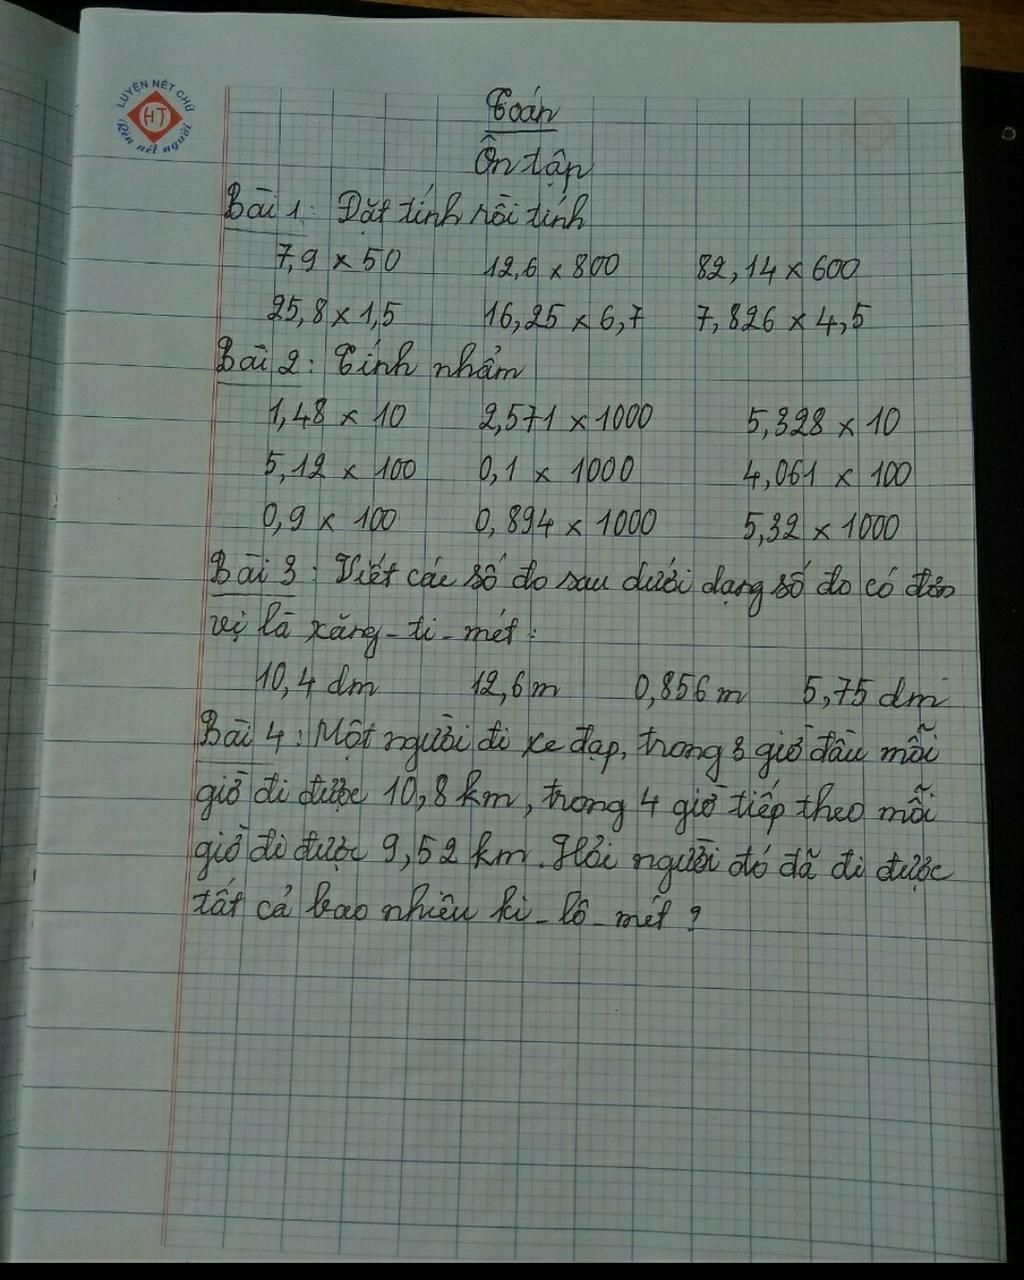 LUYỆN NÉT CHỮ
HT
Rèn nết người
Toán
Ôn tập
Bài 1: Đặt tính rồi tính
7,9 x 50 12,6 x 800 82,14 x 600
25,8 x 1,5 16,25 x 6,7 7,826 x 4,5
Bài 2: Tính nhẩm
1,48 x 10 2,571 x 1000 5,328 x 10
5,12 x 100 0,1 x 1000 4,061 x 100
0,9 x 100 0,894 x 1000 5,32 x 1000
Bài 3: Viết các số đo sau dưới dạng số đo có đơn
vị là xăng-ti-mét:
10,4 dm 12,6 m 0,856 m 5,75 dm
Bài 4: Một người đi xe đạp, trong 3 giờ đầu mỗi
giờ đi được 10,8 km, trong 4 giờ tiếp theo mỗi
giờ đi được 9,52 km. Hỏi người đó đã đi được
tất cả bao nhiêu ki-lô-mét?